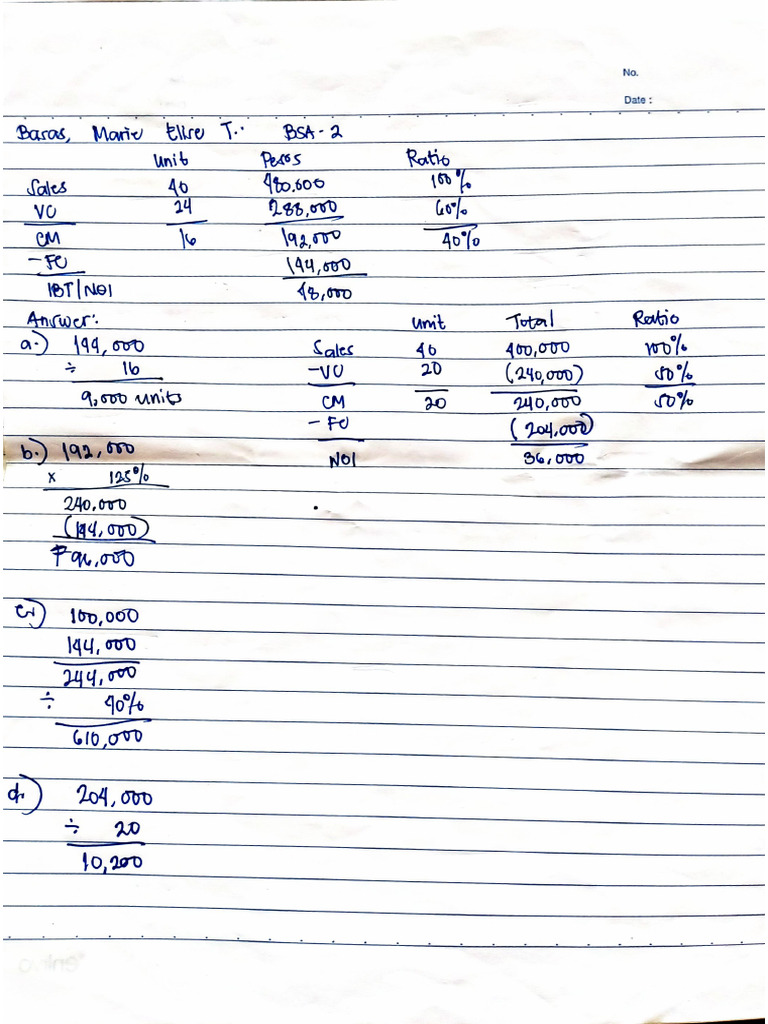 No.
Date :
Baras, Marie Elise T. BSA-2
Unit Pesos Ratio
Sales 40 480,000 100%
VC 24 288,000 60%
CM 16 192,000 40%
- FC 144,000
IBT/NOI 48,000
Answer: Unit Total Ratio
a.) 144,000 Sales 40 400,000 100%
÷ 16 - VC 20 (240,000) 50%
9,000 units CM 20 240,000 50%
- FC (204,000)
b.) 192,000 NOI 36,000
x 125%
240,000
(144,000)
₱96,000
c.) 100,000
144,000
244,000
÷ 40%
610,000
d.) 204,000
÷ 20
10,200